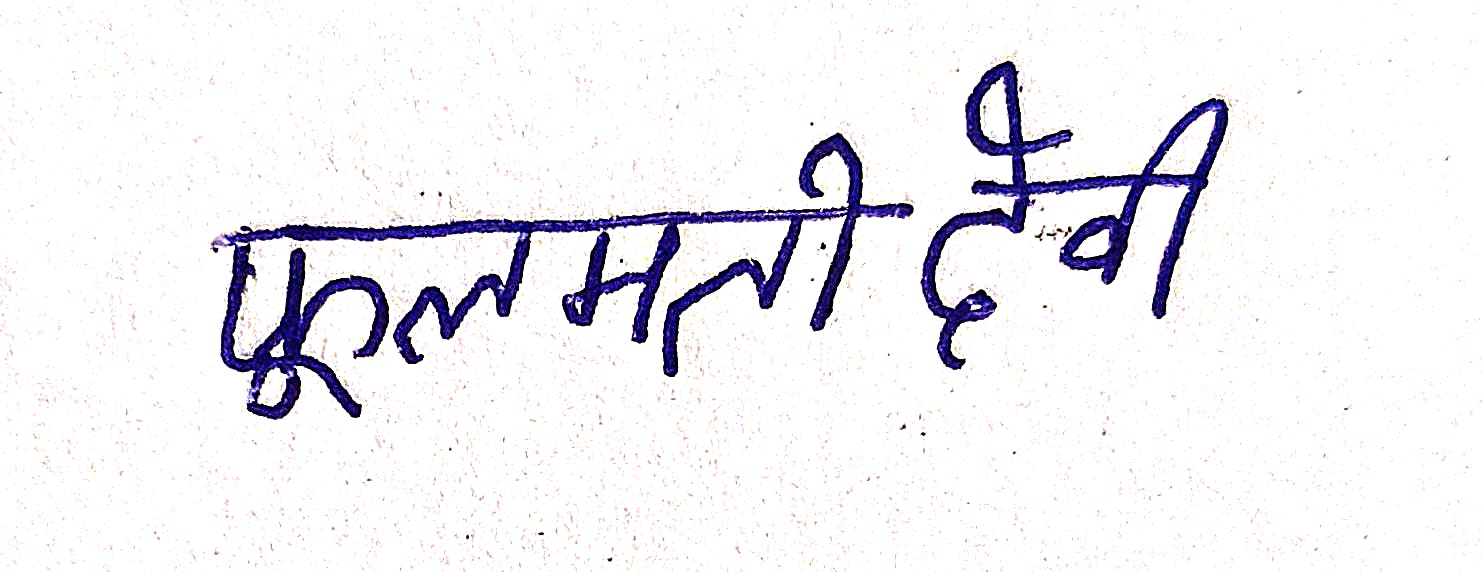 फुलमती देवी